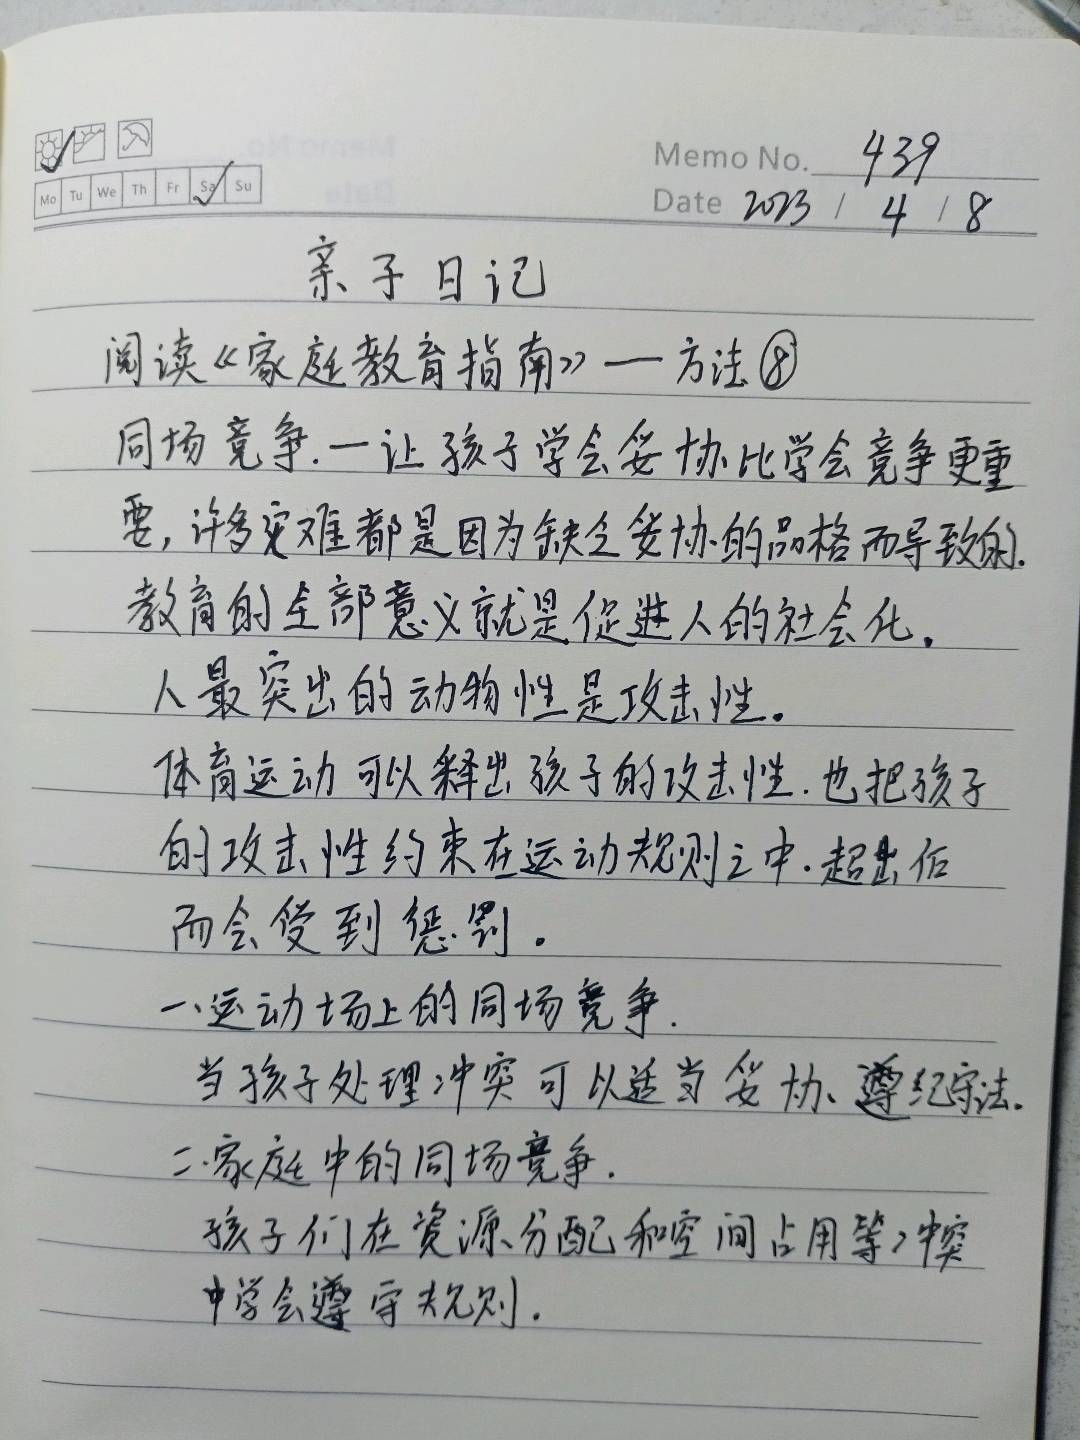 Mo Tu We Th Fr Sa Su
Memo No. 439
Date 2023 / 4 / 8
亲子日记
阅读《家庭教育指南》—方法⑧
同场竞争.一让孩子学会妥协比学会竞争更重
要,许多灾难都是因为缺乏妥协的品格而导致的.
教育的全部意义就是促进人的社会化.
人最突出的动物性是攻击性。
体育运动可以释出孩子的攻击性.也把孩子
的攻击性约束在运动规则之中.超出后
而会受到惩罚。
一.运动场上的同场竞争.
当孩子处理冲突可以适当妥协、遵纪守法.
二.家庭中的同场竞争.
孩子们在资源分配和空间占用等冲突
中学会遵守规则.